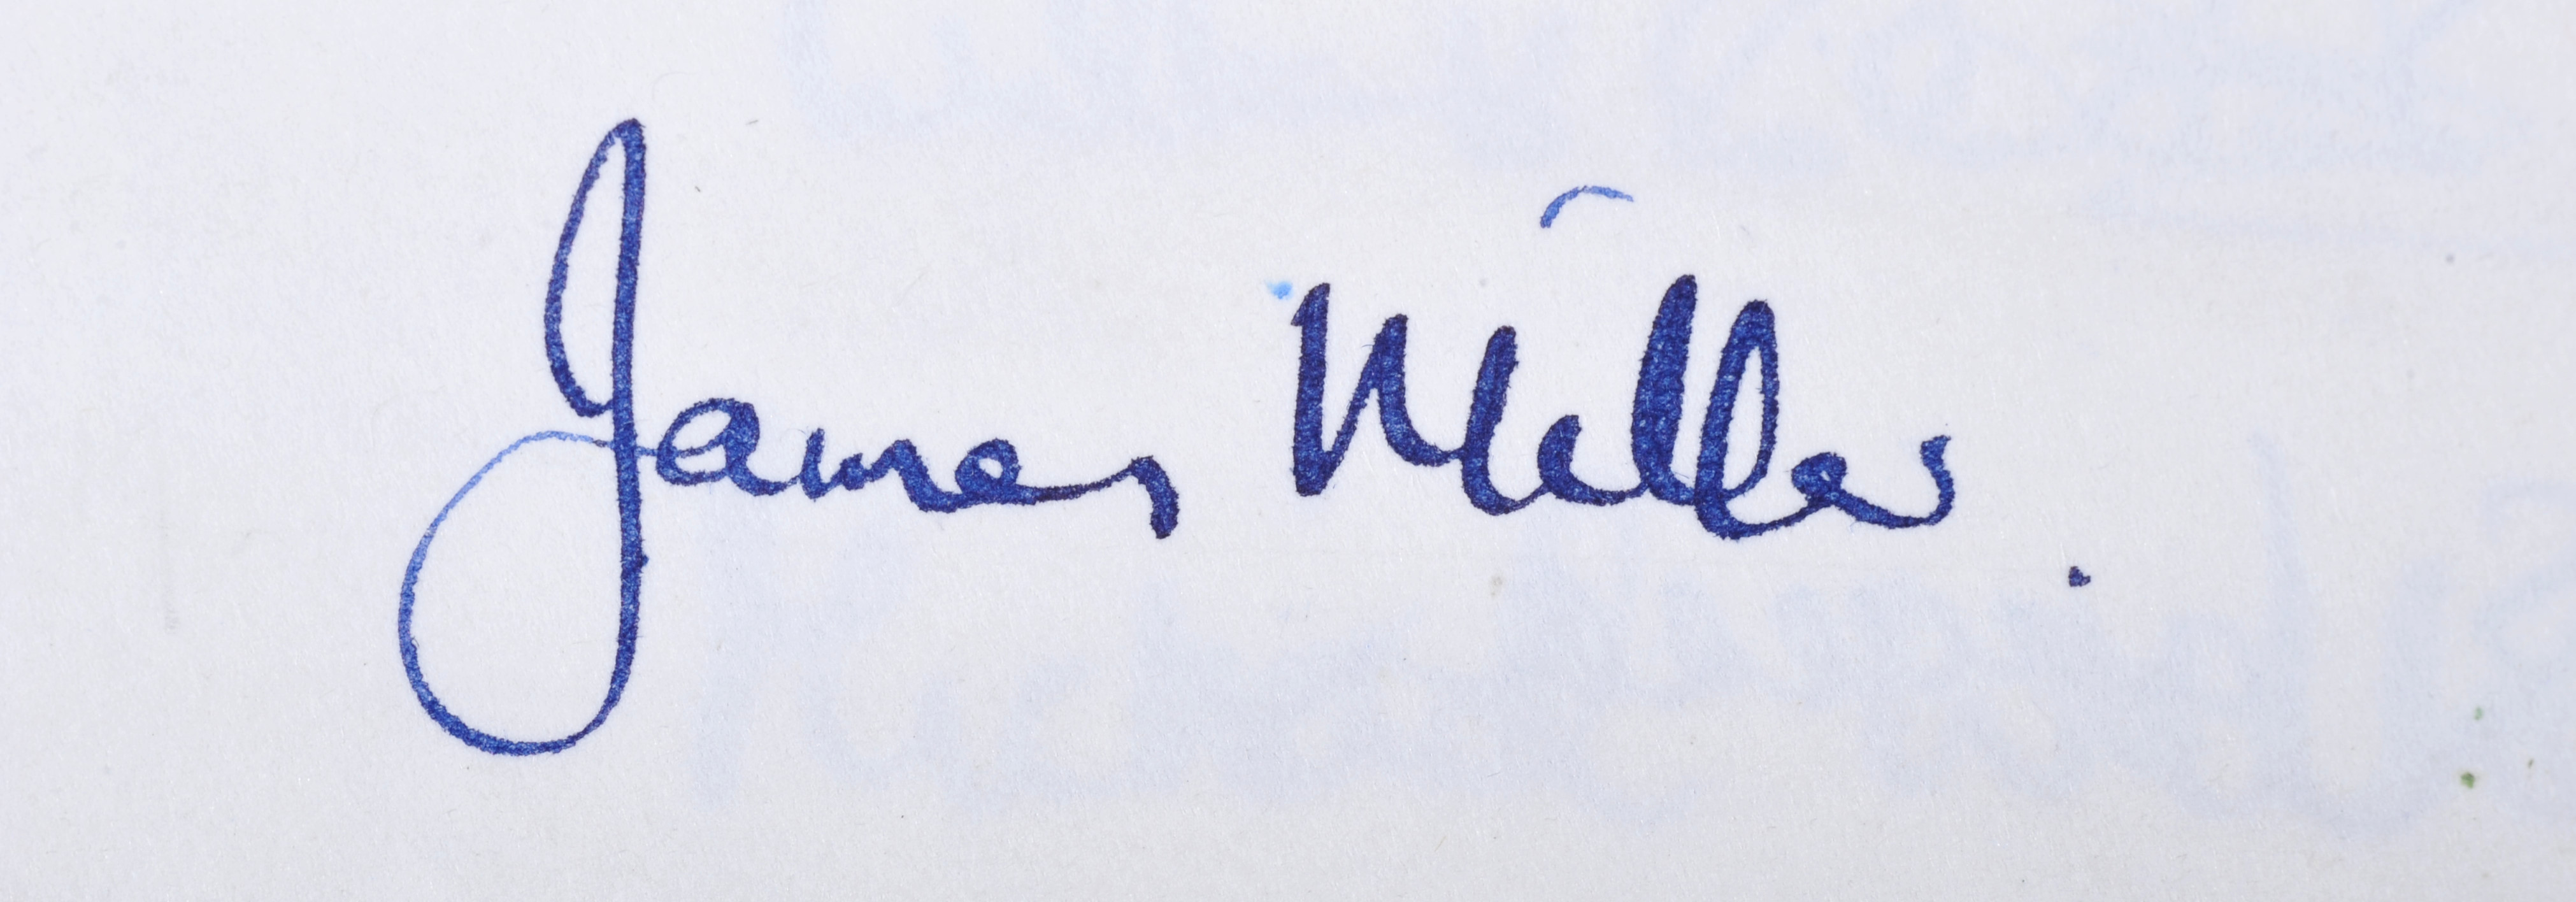 James Miller.